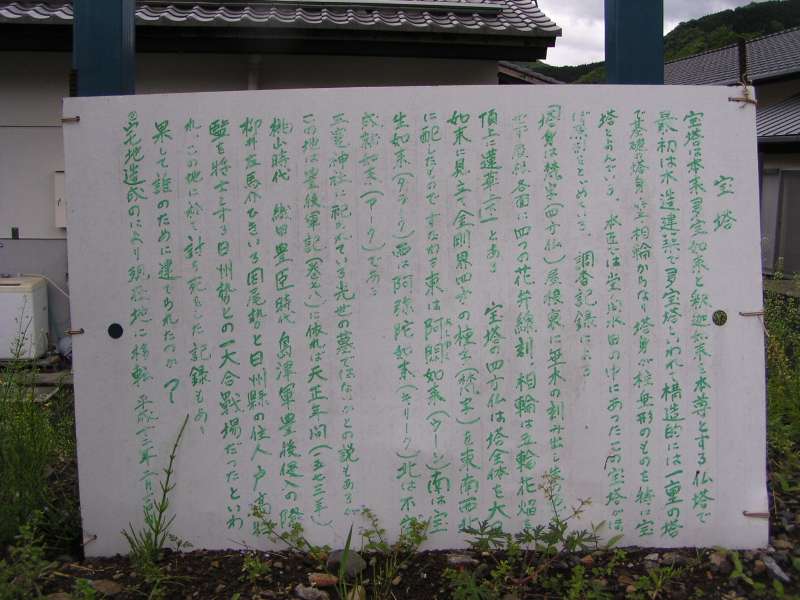 宝塔
宝塔は本来多宝如来と釈迦如来を本尊とする仏塔で
最初は木造建築で多宝塔といわれ構造的には一重の塔
で基礎、塔身、笠、相輪からなり塔身が 形のものを特に宝
塔とよんでいる。本 は 水田の中にあった 宝塔が
といわれている。調査記録による
塔身は梵字(四方仏)屋根裏に垂木の刻み出し
各面に四つの花弁線刻、相輪は五輪花焔
頂上に蓮華 とある 宝塔の四方仏は塔全体を大日
如来に見立て金剛界四方の種子(梵字)を東南西北
に配したものですなわち東は阿閦如来(ウーン)南は宝
生如来(タラーク)西は阿弥陀如来(キリーク)北は不空
成就如来(アーク)である
神社に祀られている 世の墓ではないかとの説もあるが
この地は豊後軍記(巻七、八)に依れば天正年間(一五七三年)
桃山時代 織田豊臣時代 島津軍豊後侵入の際
柳井左馬介ひきいる因尾勢と日州縣の住人戸高
監を将士とする日州勢との一大合戦場だったといわ
れ、この地に於て討ち死をした記録もあり
果して誰のために建てられたのか
宅地造成のにより現在地に移転 平成十三年八月